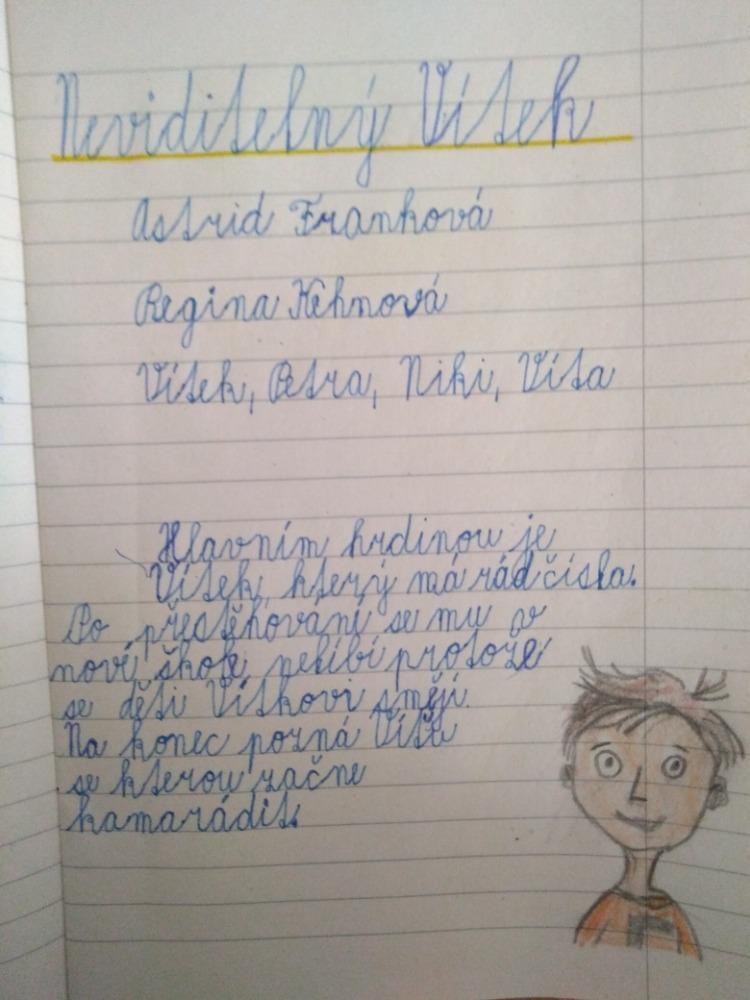 Neviditelný Vítek
Astrid Franková
Regina Kehnová
Vítek, Petra, Niki, Víťa
Hlavním hrdinou je
Vítek, který má rád čísla.
Po přestěhovaní se mu v
noví škole nelíbí protože
se děti Vítkovi smějí.
Na konec pozná Víťu
se kterou začne
kamarádit.